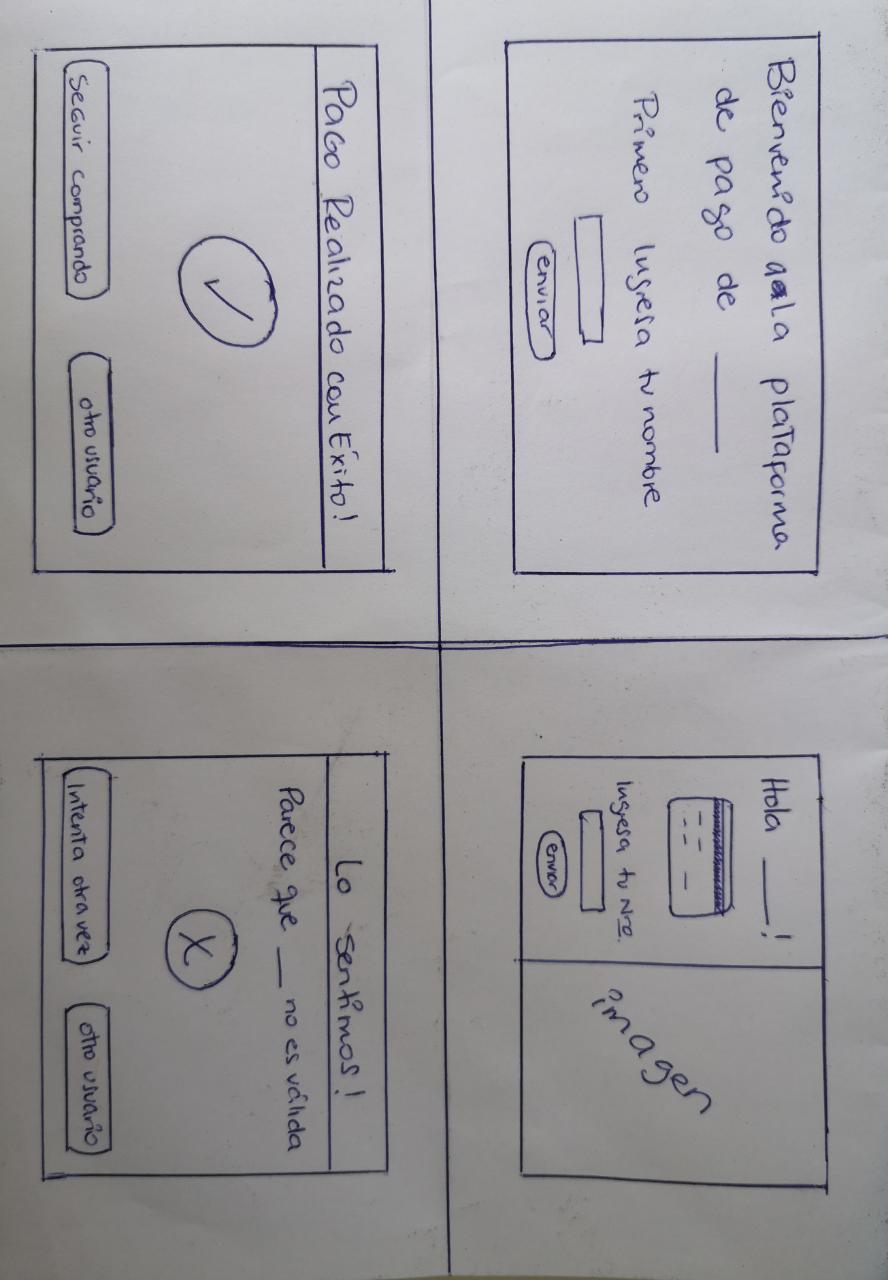 Bienvenido a la plataforma
de pago de ______
Primero Ingresa tu nombre
enviar
Hola ____!
Ingresa tu Nro.
enviar
imagen
Pago Realizado con Éxito!
Seguir comprando
otro usuario
Lo sentimos!
Parece que __ no es válida
X
Intenta otra vez
otro usuario